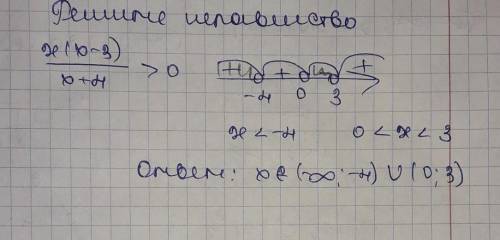 Решите неравенство
x(x-3)
x+4
> 0
+ +
-4 0 3
x < -4 0 < x < 3
Ответ: x∈(-∞;-4)∪(0;3)